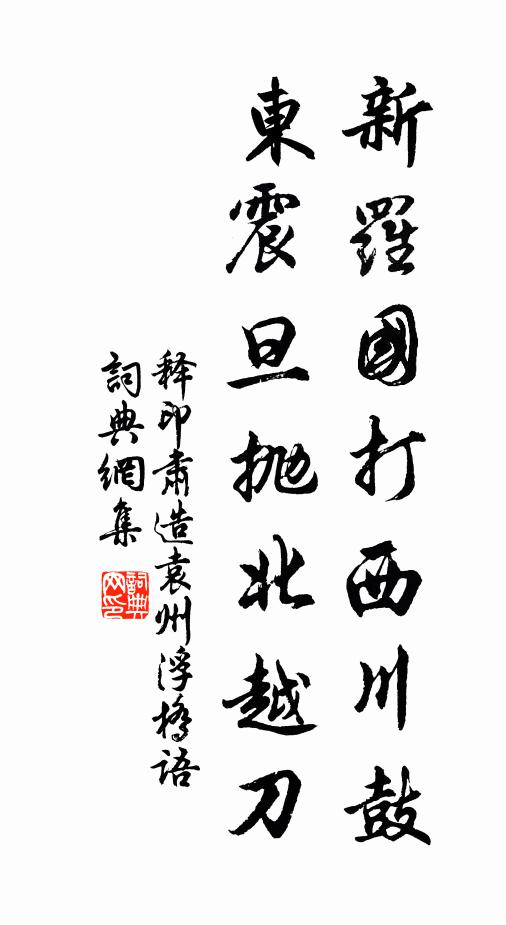 新羅國打西川鼓
東震旦抛北越刀
释印肅造袁州浮橋語
詞典網集
詞典网印